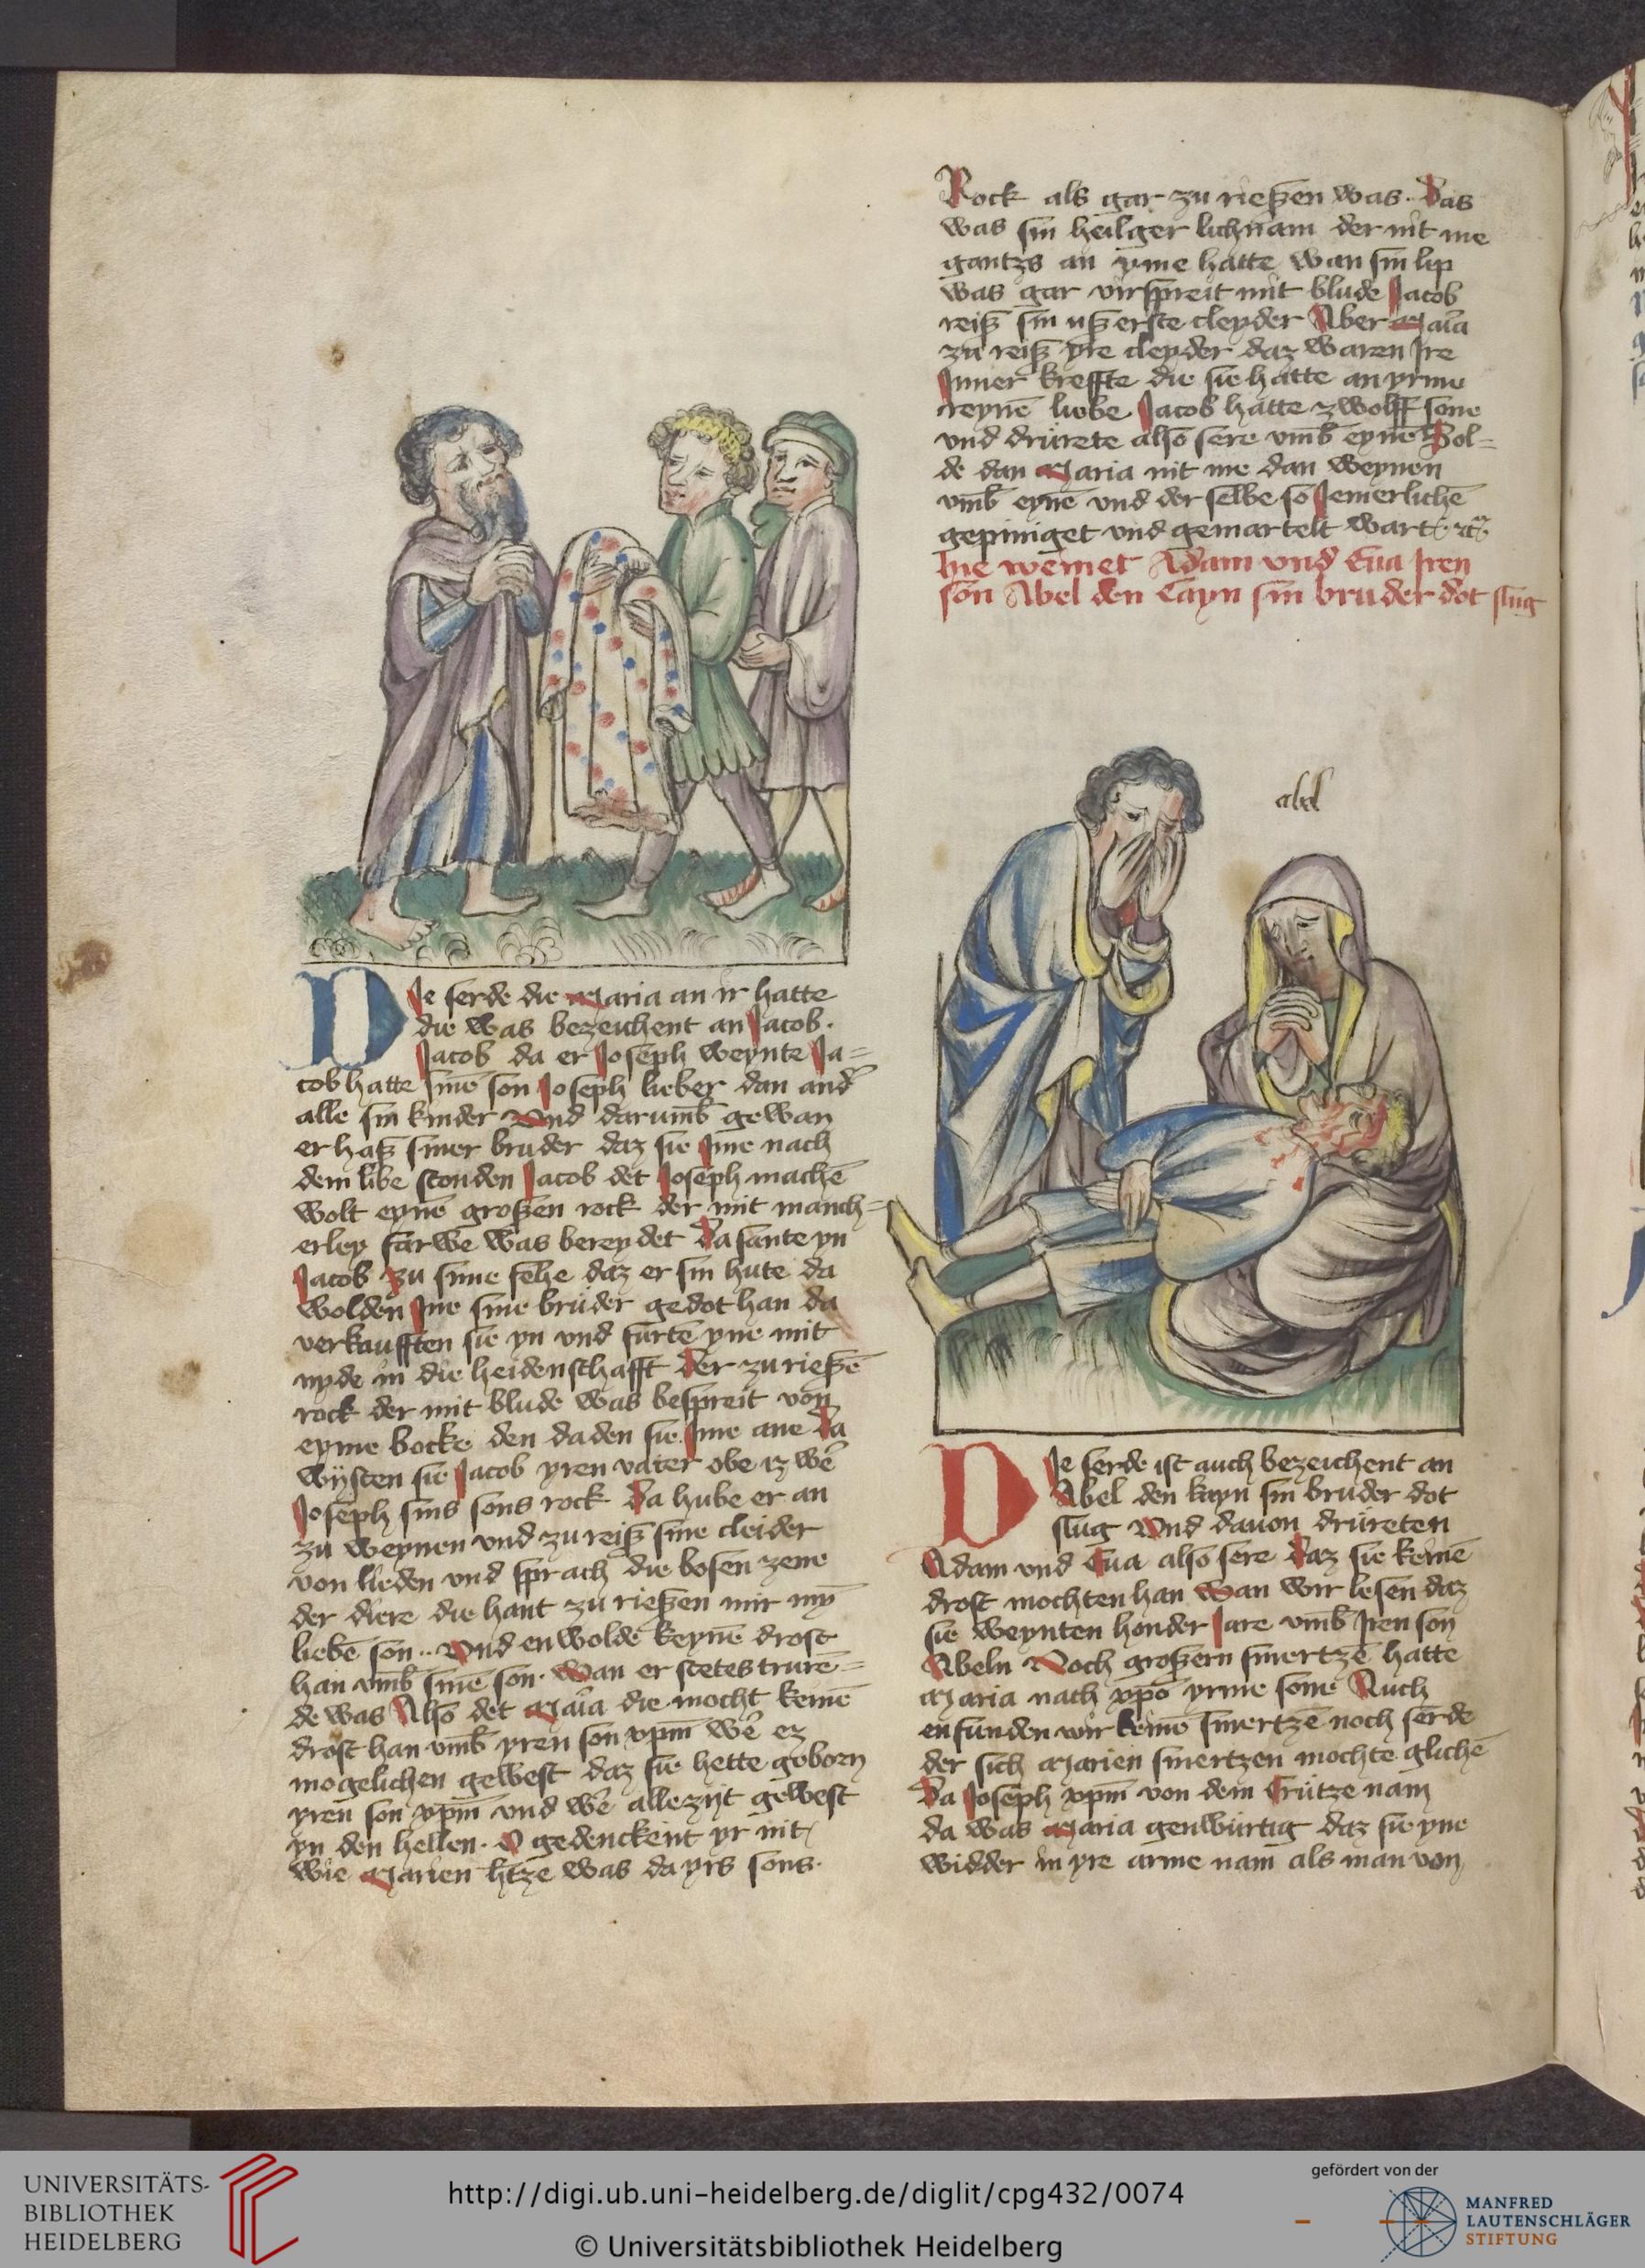 Die serde die Maria an ir hatte
die was bezeichent an Jacob.
Jacob da er Joseph weynte Ja=
cob hatte sinē son Joseph lieber dan and̄
alle sin kinder Und darumb̄ gewan
er haß siner bruder daz sie Jme nach
dem libe stonden Jacob det Joseph machē
wolt eynē großen rock der mit manch=
erley farwe was bereydet Da sante yn
Jacob zu sime fehe daz er sin hute da
wolden Jne sine brüder gedot han da
verkaufften sie yn und furtē yne mit
nyde in die heidenschafft Der zu rießē
rock der mit blude was bespreit von
eyme bocke den daden sie Jme ane Da
wÿsten sie Jacob yren vater obe iz wē
Joseph sins sons rock Da hube er an
zu weynen und zu reiß sine cleider
von lieden und sprach die bosen zene
der diere die hant zu rießen mir mȳ
liebē son·· Und enwolde keynē drost
han vmb̄ sinē son· Wan er stetes trurē=
de was Also det Maīa die mocht keinē
drost han vmb̄ yren son xpm̄ wē ez
mogelichen gewest daz sie hette geborn
yren son xpm̄ und wē allezijt gewest
yn den hellen· O gedenckent yr nit
wie Marien htze was da yrs sons·
Rock als gar zu rießen was·· Das
was sin heilger lichnam der nit me
gantzs an yme hatte wan sin lip
was gar virspreit mit blude Jacob
reiß sin ußerste cleyder Aber Maīa
zu reiß yre cleyder daz waren Jre
Jnner kreffte die sie hatte an yrme
reynē liebe Jacob hatte zwolff sone
und drürete also sere vmb̄ eynē Sol=
de dan Maria nit me dan weynen
vmb̄ eynē und der selbe so Jemerlichē
gepiniget und gemartelt wart
hie weinet Adam und Eua Jren
son Abel den Cayn sin bruder dot slug
abel
Die serde ist auch bezeichent an
Abel den kayn sin bruder dot
slug Und dauon drüreten
Adam und Eua also sere Daz sie keinē
drost mochten han Wan wir lesen daz
sie weynten honder Jare vmb̄ Jren son
Abeln Noch großern smertzē hatte
Maria nach xpō yrme sone Auch
enfunden wir keinē smertzē noch serde
der sich Marien smertzen mochte glichē
Da Joseph xpm̄ von dem Crütze nam
da was Maria genwürtig daz sie yne
widder in yre arme nam als man von
UNIVERSITÄTS-
BIBLIOTHEK
HEIDELBERG
http://digi.ub.uni-heidelberg.de/diglit/cpg432/0074
© Universitätsbibliothek Heidelberg
gefördert von der
MANFRED
LAUTENSCHLÄGER
STIFTUNG